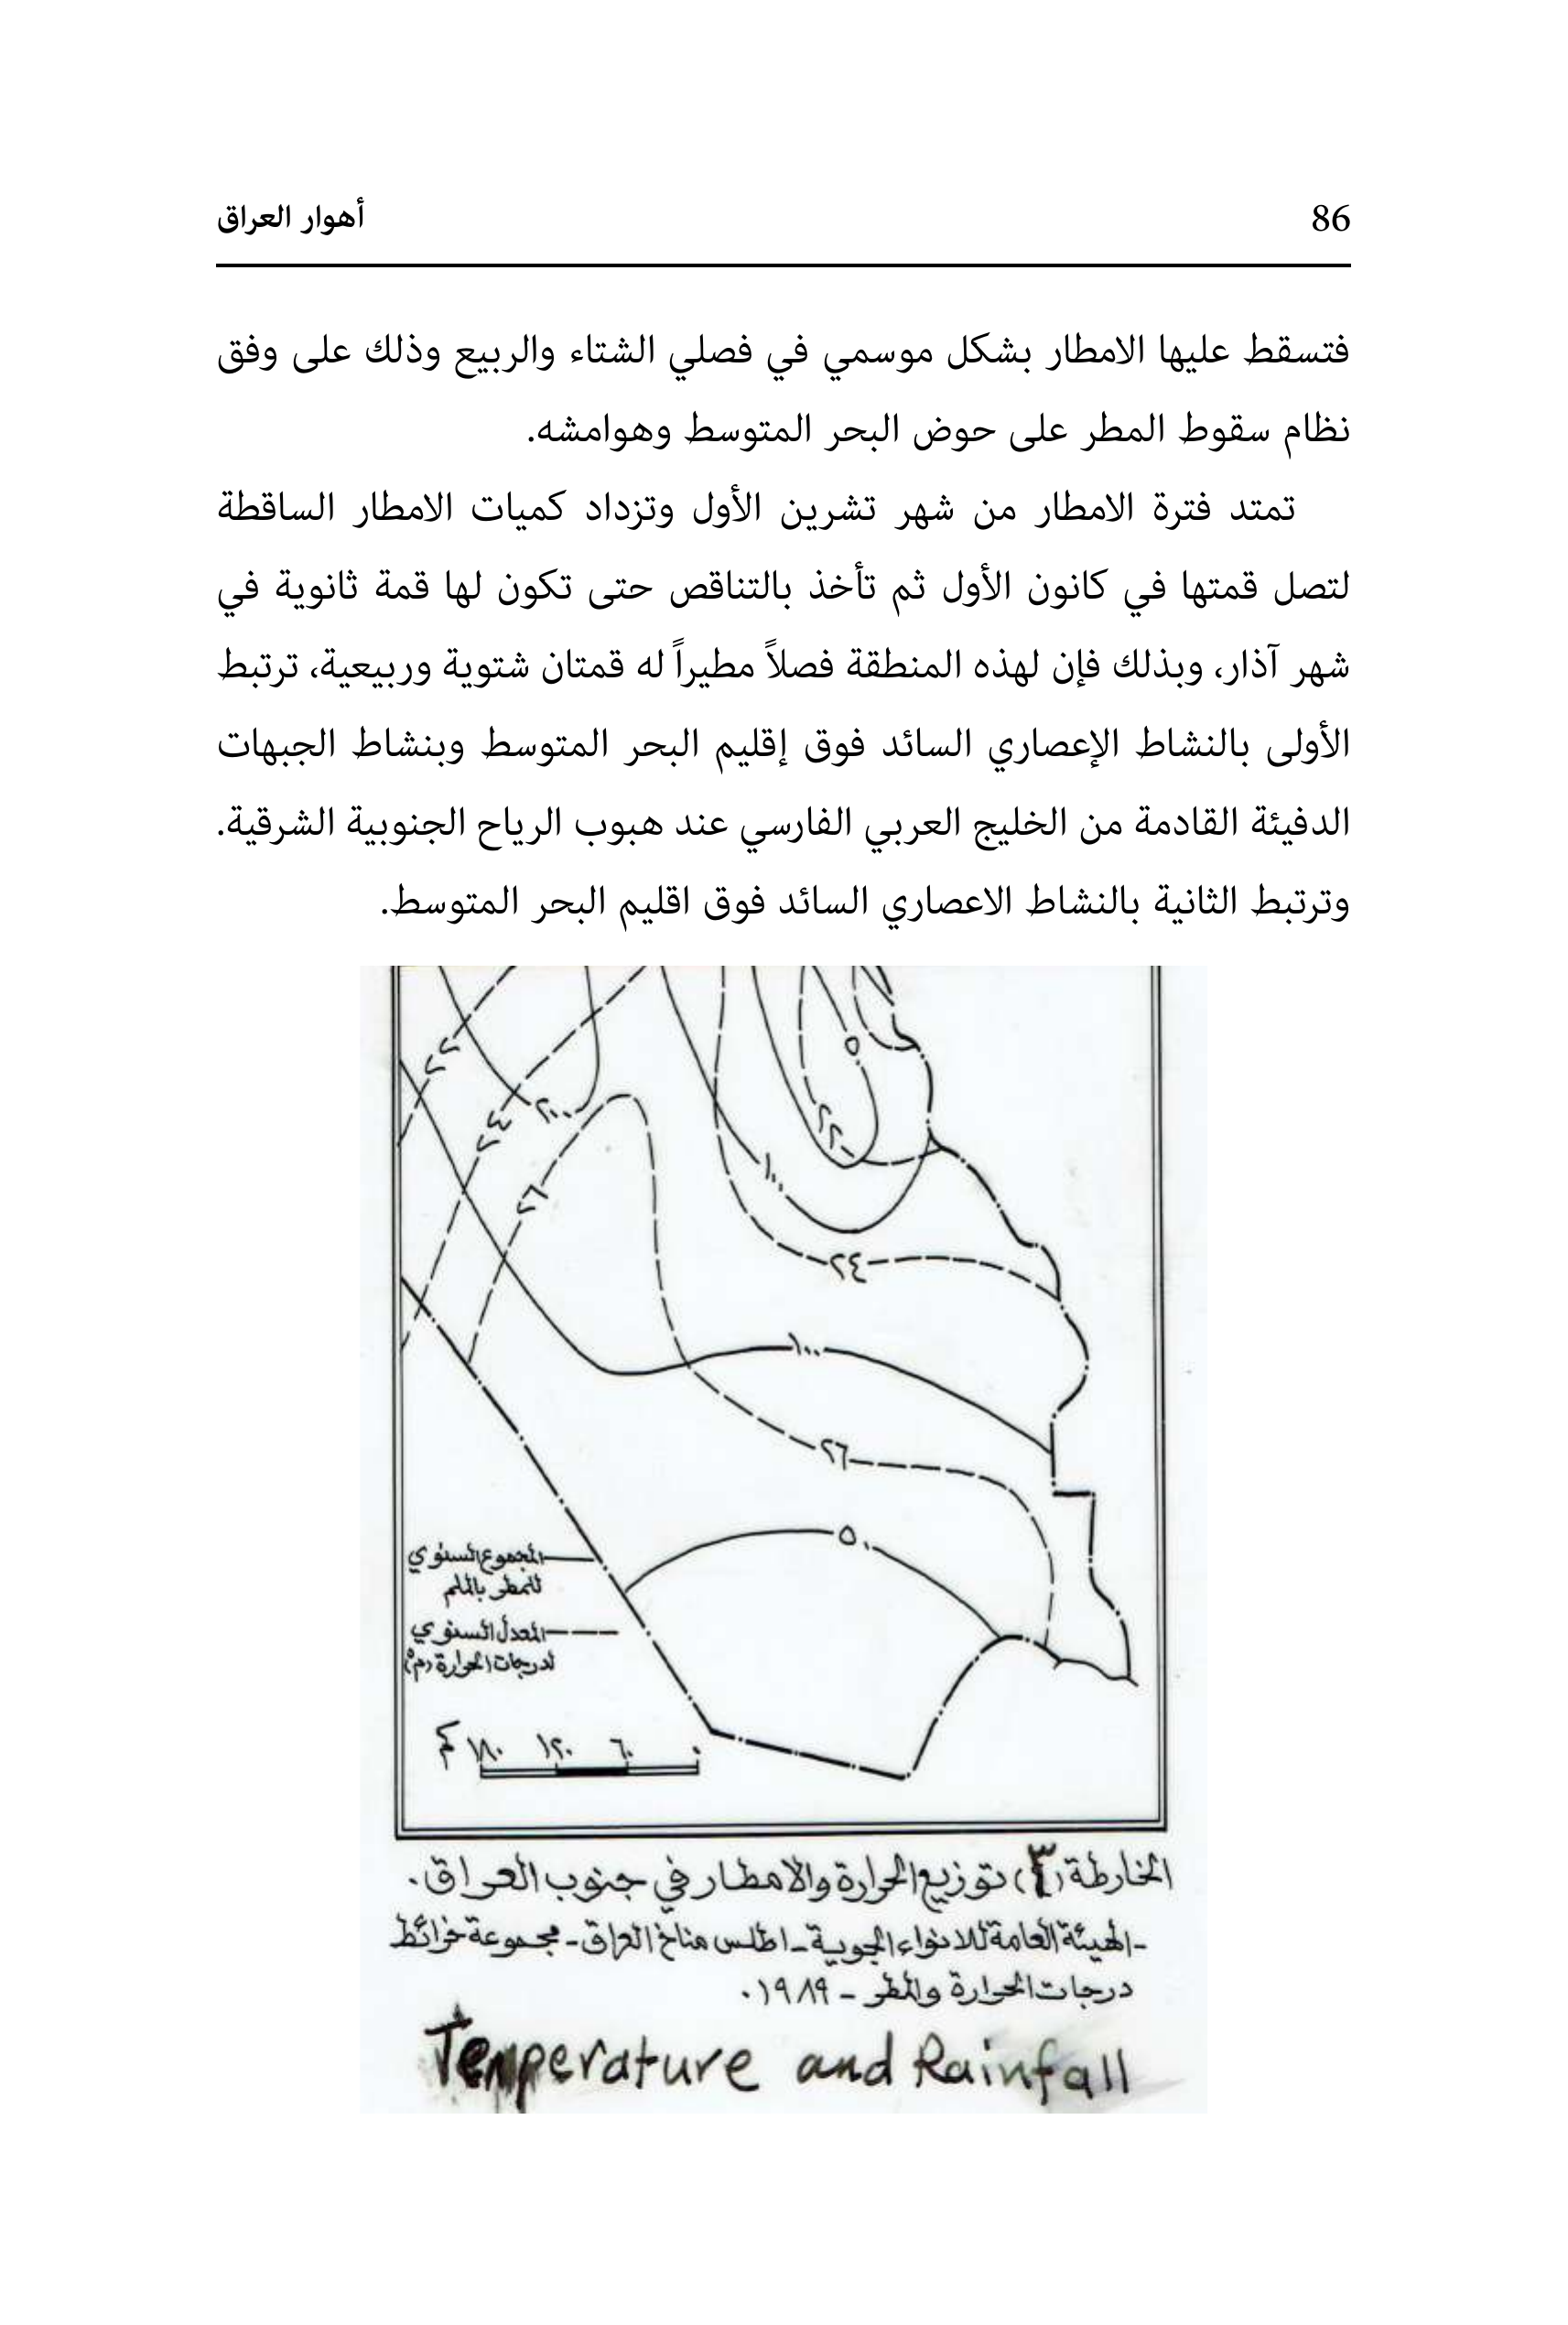 86
أهوار العراق
فتسقط عليها الامطار بشكل موسمي في فصلي الشتاء والربيع وذلك على وفق
نظام سقوط المطر على حوض البحر المتوسط وهوامشه.
تمتد فترة الامطار من شهر تشرين الأول وتزداد كميات الامطار الساقطة
لتصل قمتها في كانون الأول ثم تأخذ بالتناقص حتى تكون لها قمة ثانوية في
شهر آذار، وبذلك فإن لهذه المنطقة فصلاً مطيراً له قمتان شتوية وربيعية، ترتبط
الأولى بالنشاط الإعصاري السائد فوق إقليم البحر المتوسط وبنشاط الجبهات
الدفيئة القادمة من الخليج العربي الفارسي عند هبوب الرياح الجنوبية الشرقية.
وترتبط الثانية بالنشاط الاعصاري السائد فوق اقليم البحر المتوسط.
٢٤
٢٦
٢٢
١٠٠
٢٤
١٠٠
٢٦
٥٠
المجموع السنوي
للمطر بالملم
المعدل السنوي
لدرجات الحرارة (م°)
كم ١٨٠ ١٢٠ ٦٠ ٠
الخارطة (٣) توزيع الحرارة والامطار في جنوب العراق.
-الهيئة العامة للانواء الجوية - اطلس مناخ العراق - مجموعة خرائط
درجات الحرارة والمطر - ١٩٨٩.
Temperature and Rainfall